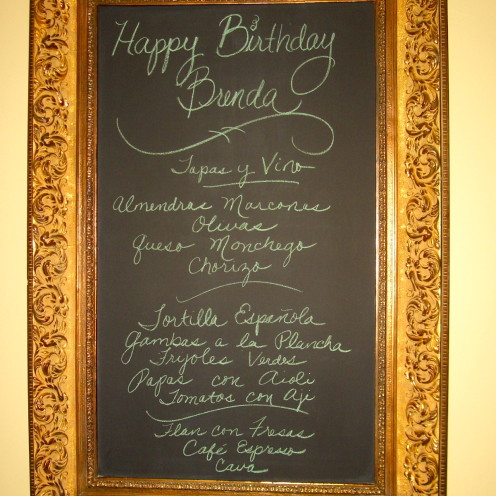 Happy Birthday
Brenda
Tapas y Vino
Almendras Marconas
Olivas
Queso Monchego
Chorizo
Tortilla Española
Gambas a la Plancha
Fryoles Verdes
Papas con Aioli
Tomatos con Aji
Flan con Fresas
Café Espresso
Cava